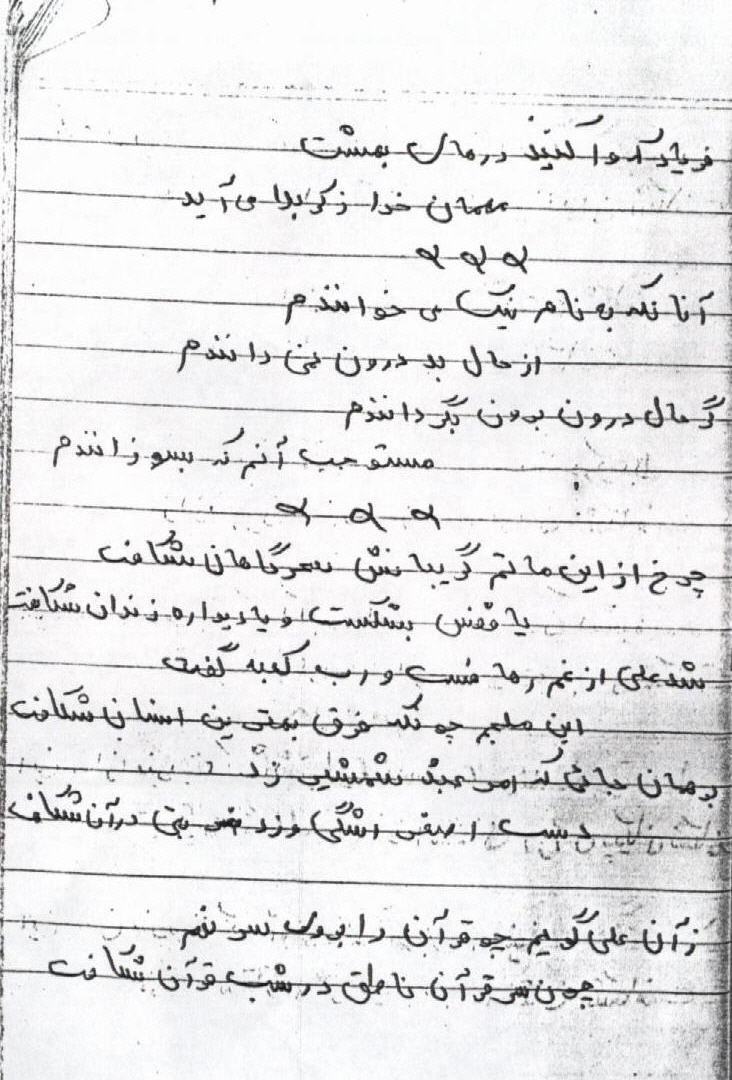 فریاد که وا کنید درهای بهشت
مهمان خدا ز کربلا می آید
آنانکه به نام نیک می خوانندم
از حال بد درون نمی دانندم
گر حال درون برون بگردانندم
مستوجب آنم که بسوزانندم
چرخ از این ماتم گریبانش سحرگاهان شکافت
یا قفس بشکست و یا دیواره زندان شکافت
شد علی از غم رها فسب و رب کعبه گفت
ابن ملجم چونکه فرق بهترین انسان شکافت
بر همان جائی که عمر عبد شمشیر زد
دست اشقی ضربتی در آن شکافت
زآن علی گوئیم چو قرآن را بروی سر نهیم
چون سر قرآن ناطق در شب قرآن شکافت